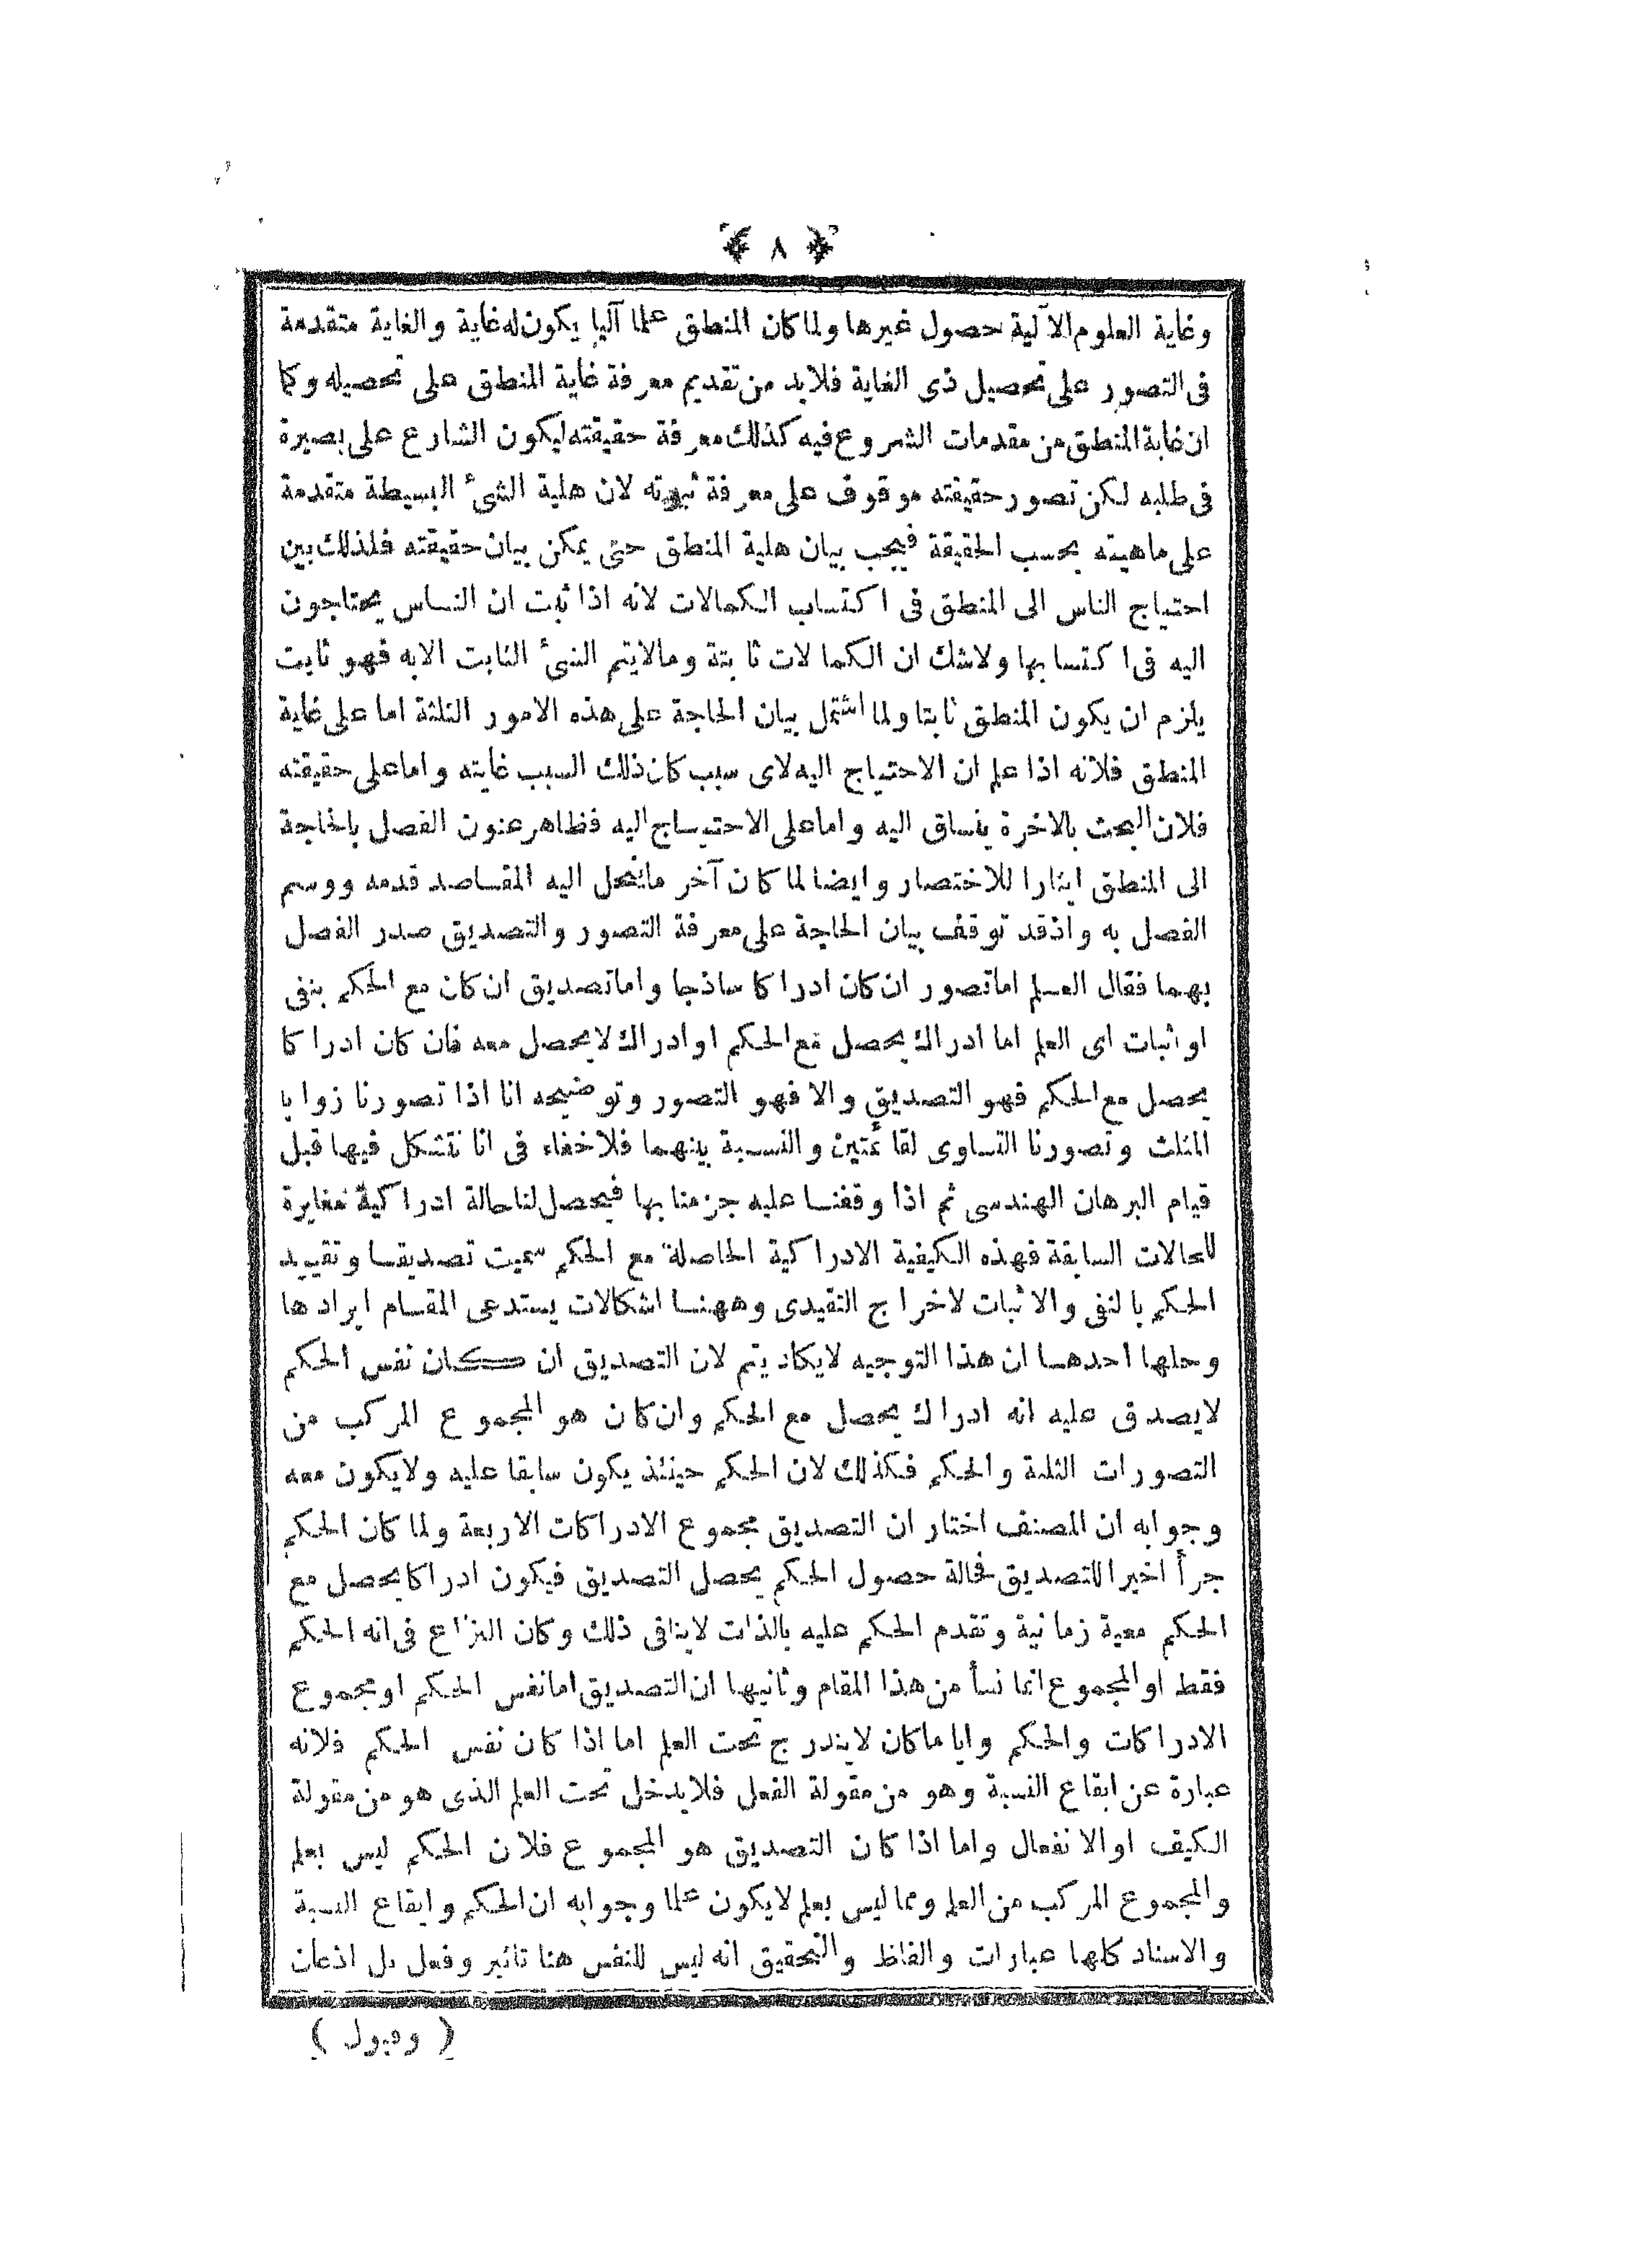 ٨
وغاية العلوم الآلية حصول غيرها ولما كان المنطق علما آليا يكون له غاية والغاية متقدمة
فى التصور على تحصيل ذى الغاية فلابد من تقديم معرفة غاية المنطق على تحصيله وكما
ان غاية المنطق من مقدمات الشروع فيه كذلك معرفة حقيقته ليكون الشارع على بصيرة
فى طلبه لكن تصور حقيقته موقوف على معرفة ثبوته لان هلية الشئ البسيطة متقدمة
على ماهيته بحسب الحقيقة فيجب بيان هلية المنطق حتى يمكن بيان حقيقته فلذلك بين
احتياج الناس الى المنطق فى اكتساب الكمالات لانه اذا ثبت ان الناس يحتاجون
اليه فى اكتسابها ولاشك ان الكمالات ثابتة ومالايتم الشئ الثابت الابه فهو ثابت
يلزم ان يكون المنطق ثابتا ولما اشتمل بيان الحاجة على هذه الامور الثلثة اما على غاية
المنطق فلانه اذا علم ان الاحتياج اليه لاى سبب كان ذلك السبب غايته واما على حقيقته
فلان البحث بالاخرة ينساق اليه واما على الاحتياج اليه فظاهر عنون الفصل بالحاجة
الى المنطق ايثارا للاختصار وايضا لما كان آخر ما ينحل اليه المقاصد قدمه ووسم
الفصل به واذقد توقف بيان الحاجة على معرفة التصور والتصديق صدر الفصل
بهما فقال العلم اما تصور ان كان ادراكا ساذجا واما تصديق ان كان مع الحكم بنفى
او اثبات اى العلم اما ادراك يحصل مع الحكم او ادراك لا يحصل معه فان كان ادراكا
يحصل مع الحكم فهو التصديق والا فهو التصور وتوضيحه انا اذا تصورنا زوايا
المثلث وتصورنا التساوى لقائمتين والنسبة بينهما فلا خفاء فى انا نتشكل فيها قبل
قيام البرهان الهندسى ثم اذا وقفنا عليه جزمنا بها فيحصل لنا حالة ادراكية مغايرة
للحالات السابقة فهذه الكيفية الادراكية الحاصلة مع الحكم سميت تصديقا وتقييد
الحكم بالنفى والاثبات لاخراج التقيدى وههنا اشكالات يستدعى المقام ايرادها
وحلها احدها ان هذا التوجيه لايكاد يتم لان التصديق ان كان نفس الحكم
لايصدق عليه انه ادراك يحصل مع الحكم وان كان هو المجموع المركب من
التصورات الثلثة والحكم فكذلك لان الحكم حينئذ يكون سابقا عليه ولايكون معه
وجوابه ان المصنف اختار ان التصديق مجموع الادراكات الاربعة ولما كان الحكم
جزأ اخيرا للتصديق فحالة حصول الحكم يحصل التصديق فيكون ادراكا يحصل مع
الحكم معية زمانية وتقدم الحكم عليه بالذات لاينافى ذلك وكان النزاع فى انه الحكم
فقط او المجموع انما نشأ من هذا المقام وثانيها ان التصديق اما نفس الحكم او مجموع
الادراكات والحكم وايا ما كان لا يندرج تحت العلم اما اذا كان نفس الحكم فلانه
عبارة عن ايقاع النسبة وهو من مقولة الفعل فلا يدخل تحت العلم الذى هو من مقولة
الكيف او الانفعال واما اذا كان التصديق هو المجموع فلان الحكم ليس بعلم
والمجموع المركب من العلم ومما ليس بعلم لايكون علما وجوابه ان الحكم وايقاع النسبة
والاسناد كلها عبارات والفاظ والتحقيق انه ليس للنفس هنا تاثير وفعل بل اذعان
( وقبول )